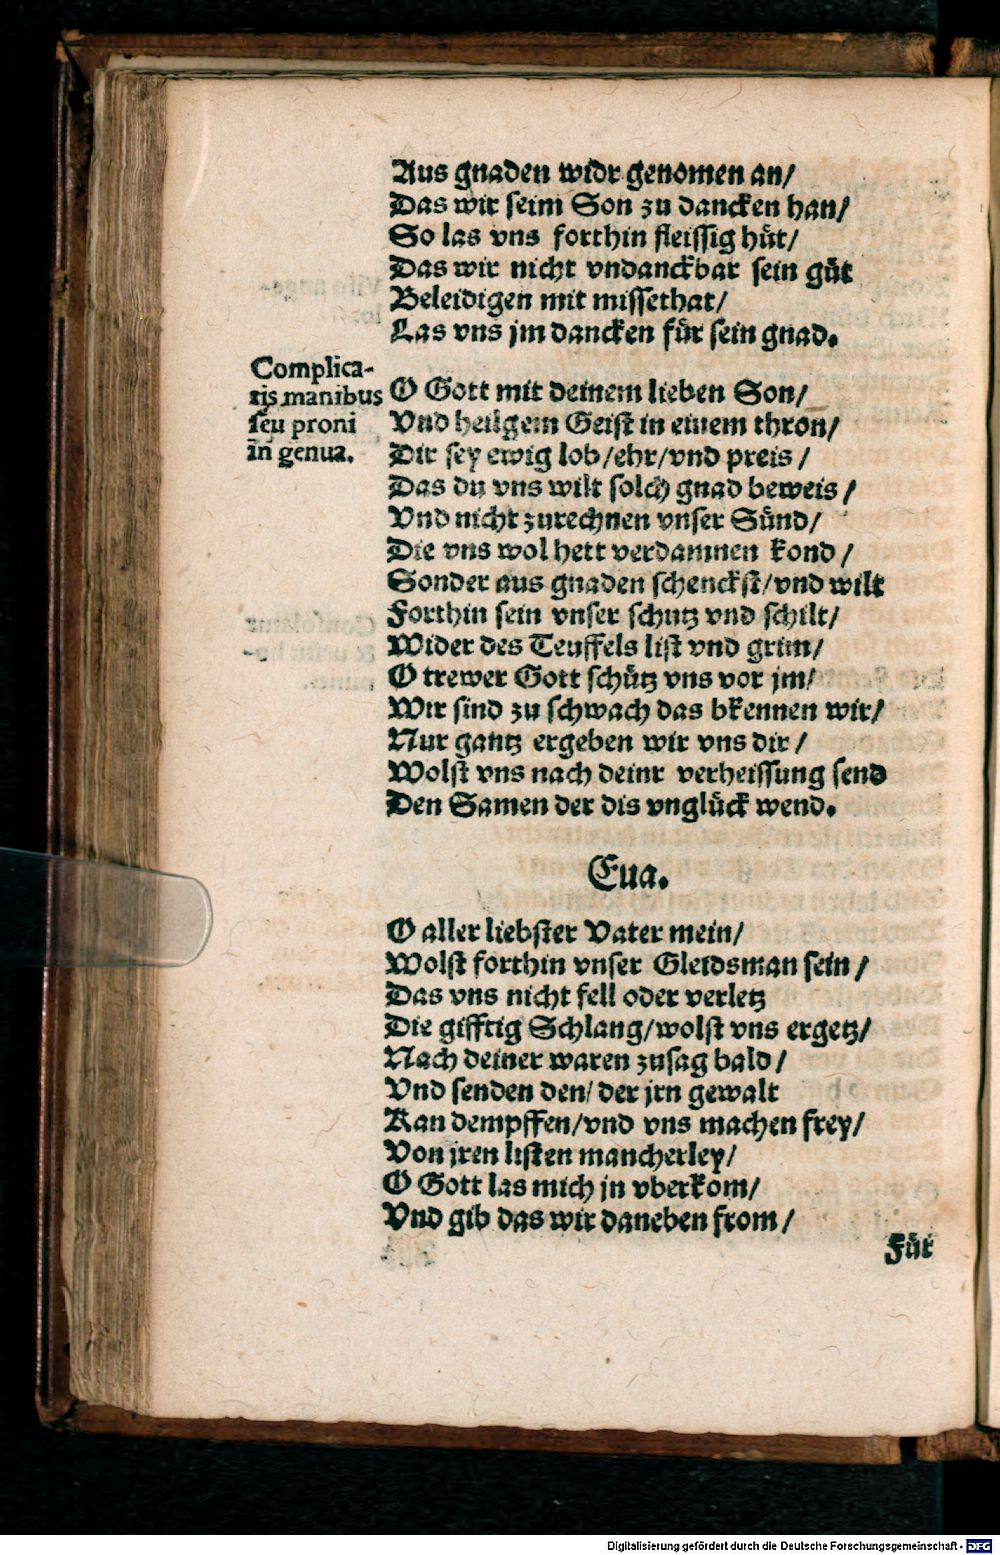 Aus gnaden widr genomen an/
Das wir seim Son zu dancken han/
So las vns forthin fleissig hüt/
Das wir nicht vndanckbar sein güt
Beleidigen mit missethat/
Las vns jm dancken für sein gnad.
Complica-
tis manibus
seu proni
in genua.
O Gott mit deinem lieben Son/
Vnd heilgem Geist in einem thron/
Dir sey ewig lob/ehr/vnd preis/
Das du vns wilt solch gnad beweis/
Vnd nicht zurechnen vnser Sünd/
Die vns wol hett verdamnen kond/
Sonder aus gnaden schenckst/vnd wilt
Forthin sein vnser schutz vnd schilt/
Wider des Teuffels list vnd grim/
O trewer Gott schütz vns vor jm/
Wir sind zu schwach das bkennen wir/
Nur gantz ergeben wir vns dir/
Wolst vns nach deinr verheissung send
Den Samen der dis vnglück wend.
Eua.
O aller liebster Vater mein/
Wolst forthin vnser Gleidsman sein/
Das vns nicht fell oder verletz
Die gifftig Schlang/wolst vns ergetz/
Nach deiner waren zusag bald/
Vnd senden den/ der jrn gewalt
Kan dempffen/vnd vns machen frey/
Von jren listen mancherley/
O Gott las mich jn vberkom/
Vnd gib das wir daneben from/
Für
Digitalisierung gefördert durch die Deutsche Forschungsgemeinschaft - DFG